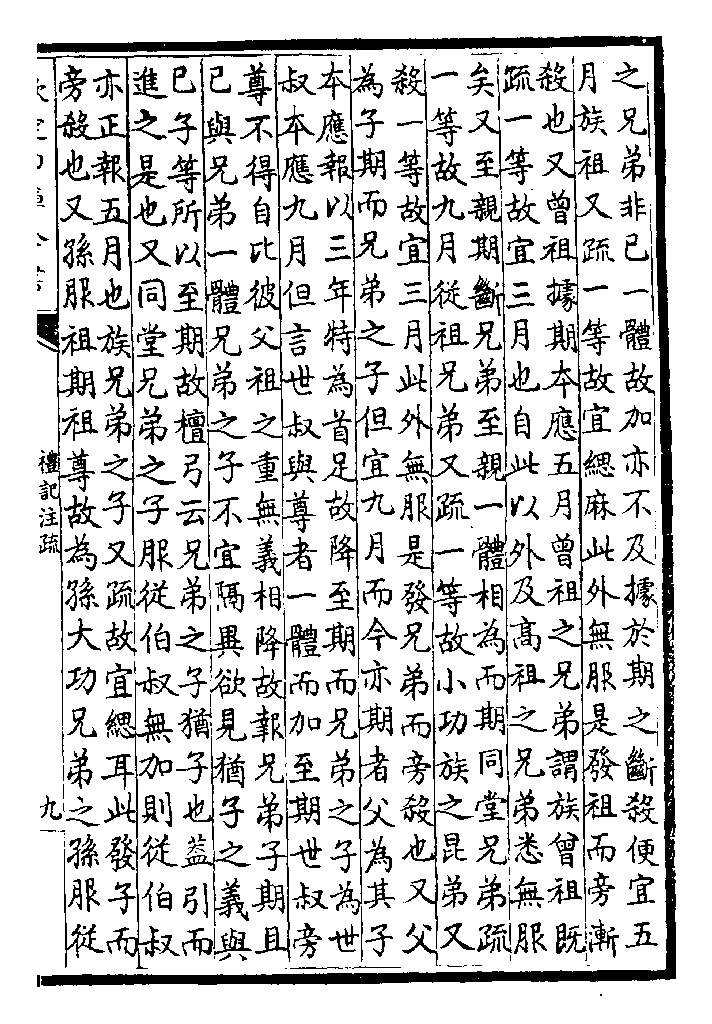 之兄弟非已一體故加亦不及據於期之斷殺便宜五
月族祖又疏一等故宜緦麻此外無服是發祖而旁漸
殺也又曾祖據期本應五月曾祖之兄弟謂族曾祖既
疏一等故宜三月也自此以外及高祖之兄弟悉無服
矣又至親期斷兄弟至親一體相為而期同堂兄弟疏
一等故九月從祖兄弟又疏一等故小功族之昆弟又
殺一等故宜三月此外無服是發兄弟而旁殺也又父
為子期而兄弟之子但宜九月而今亦期者父為其子
本應報以三年特為首足故降至期而兄弟之子為世
叔本應九月但言世叔與尊者一體而加至期世叔旁
尊不得自比彼父祖之重無義相降故報兄弟子期且
已與兄弟一體兄弟之子不宜隔異欲見猶子之義與
已子等所以至期故檀弓云兄弟之子猶子也葢引而
進之是也又同堂兄弟之子服從伯叔無加則從伯叔
亦正報五月也族兄弟之子又疏故宜緦耳此發子而
旁殺也又孫服祖期祖尊故為孫大功兄弟之孫服從
禮記注疏
九